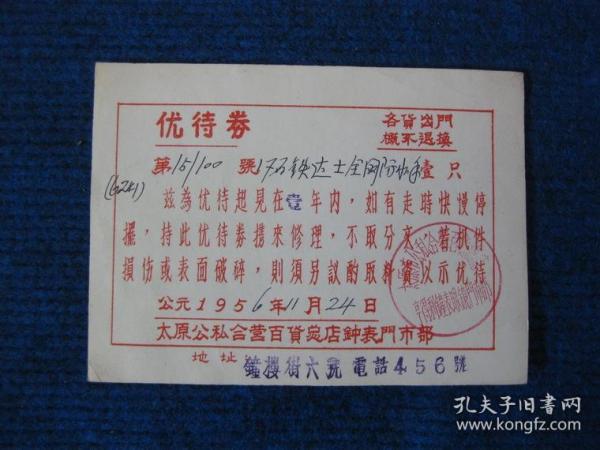 优待券
各貨出門
概不退換
第15/100號17石铁达士全钢防水手壹只
(6241)
茲為优待起見在壹年內，如有走時快慢停
擺，持此优待券攜來修理，不取分文，若机件
損伤或表面破碎，則須另議酌取料費以示优待
公元1956年11月24日
太原公私合营百貨總店鐘表門市部
地址 鐘樓街六號 電話456號
孔夫子旧书网
www.kongfz.com